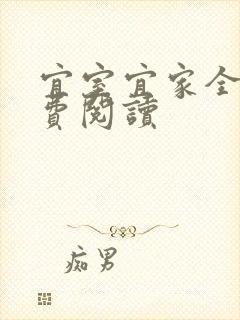 宜室宜家全
費閱讀
痴男